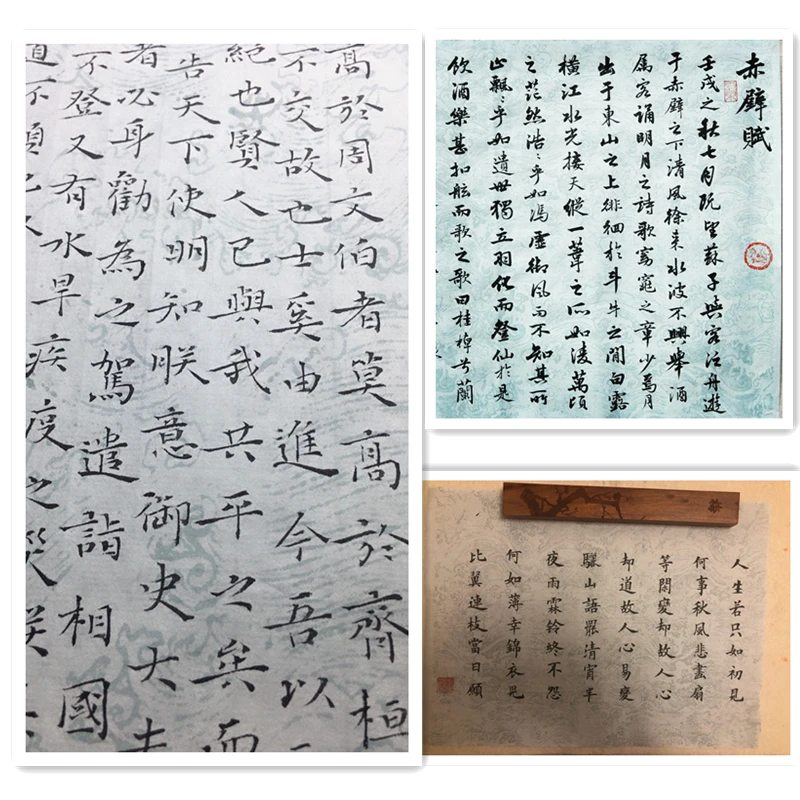 高於周文伯者莫高於齊桓
不交故也士奚由進今吾以
絕也賢人已與我共平之矣而
告天下使明知朕意御史大
者必身勸為之駕遣詣相國
不登又有水旱疾疫之災朕
赤壁賦
壬戌之秋七月既望蘇子與客泛舟遊
于赤壁之下清風徐來水波不興舉酒
属客誦明月之詩歌窈窕之章少焉月
出于東山之上徘徊於斗牛之間白露
橫江水光接天縱一葦之所如凌萬頃
之茫然浩〻乎如馮虛御風而不知其所
止飄〻乎如遺世獨立羽化而登仙於是
飲酒樂甚扣舷而歌之歌曰桂棹兮蘭
人生若只如初見
何事秋風悲畫扇
等閒變却故人心
却道故人心易變
驪山語罷清宵半
夜雨霖鈴終不怨
何如薄幸錦衣兒
比翼連枝當日願